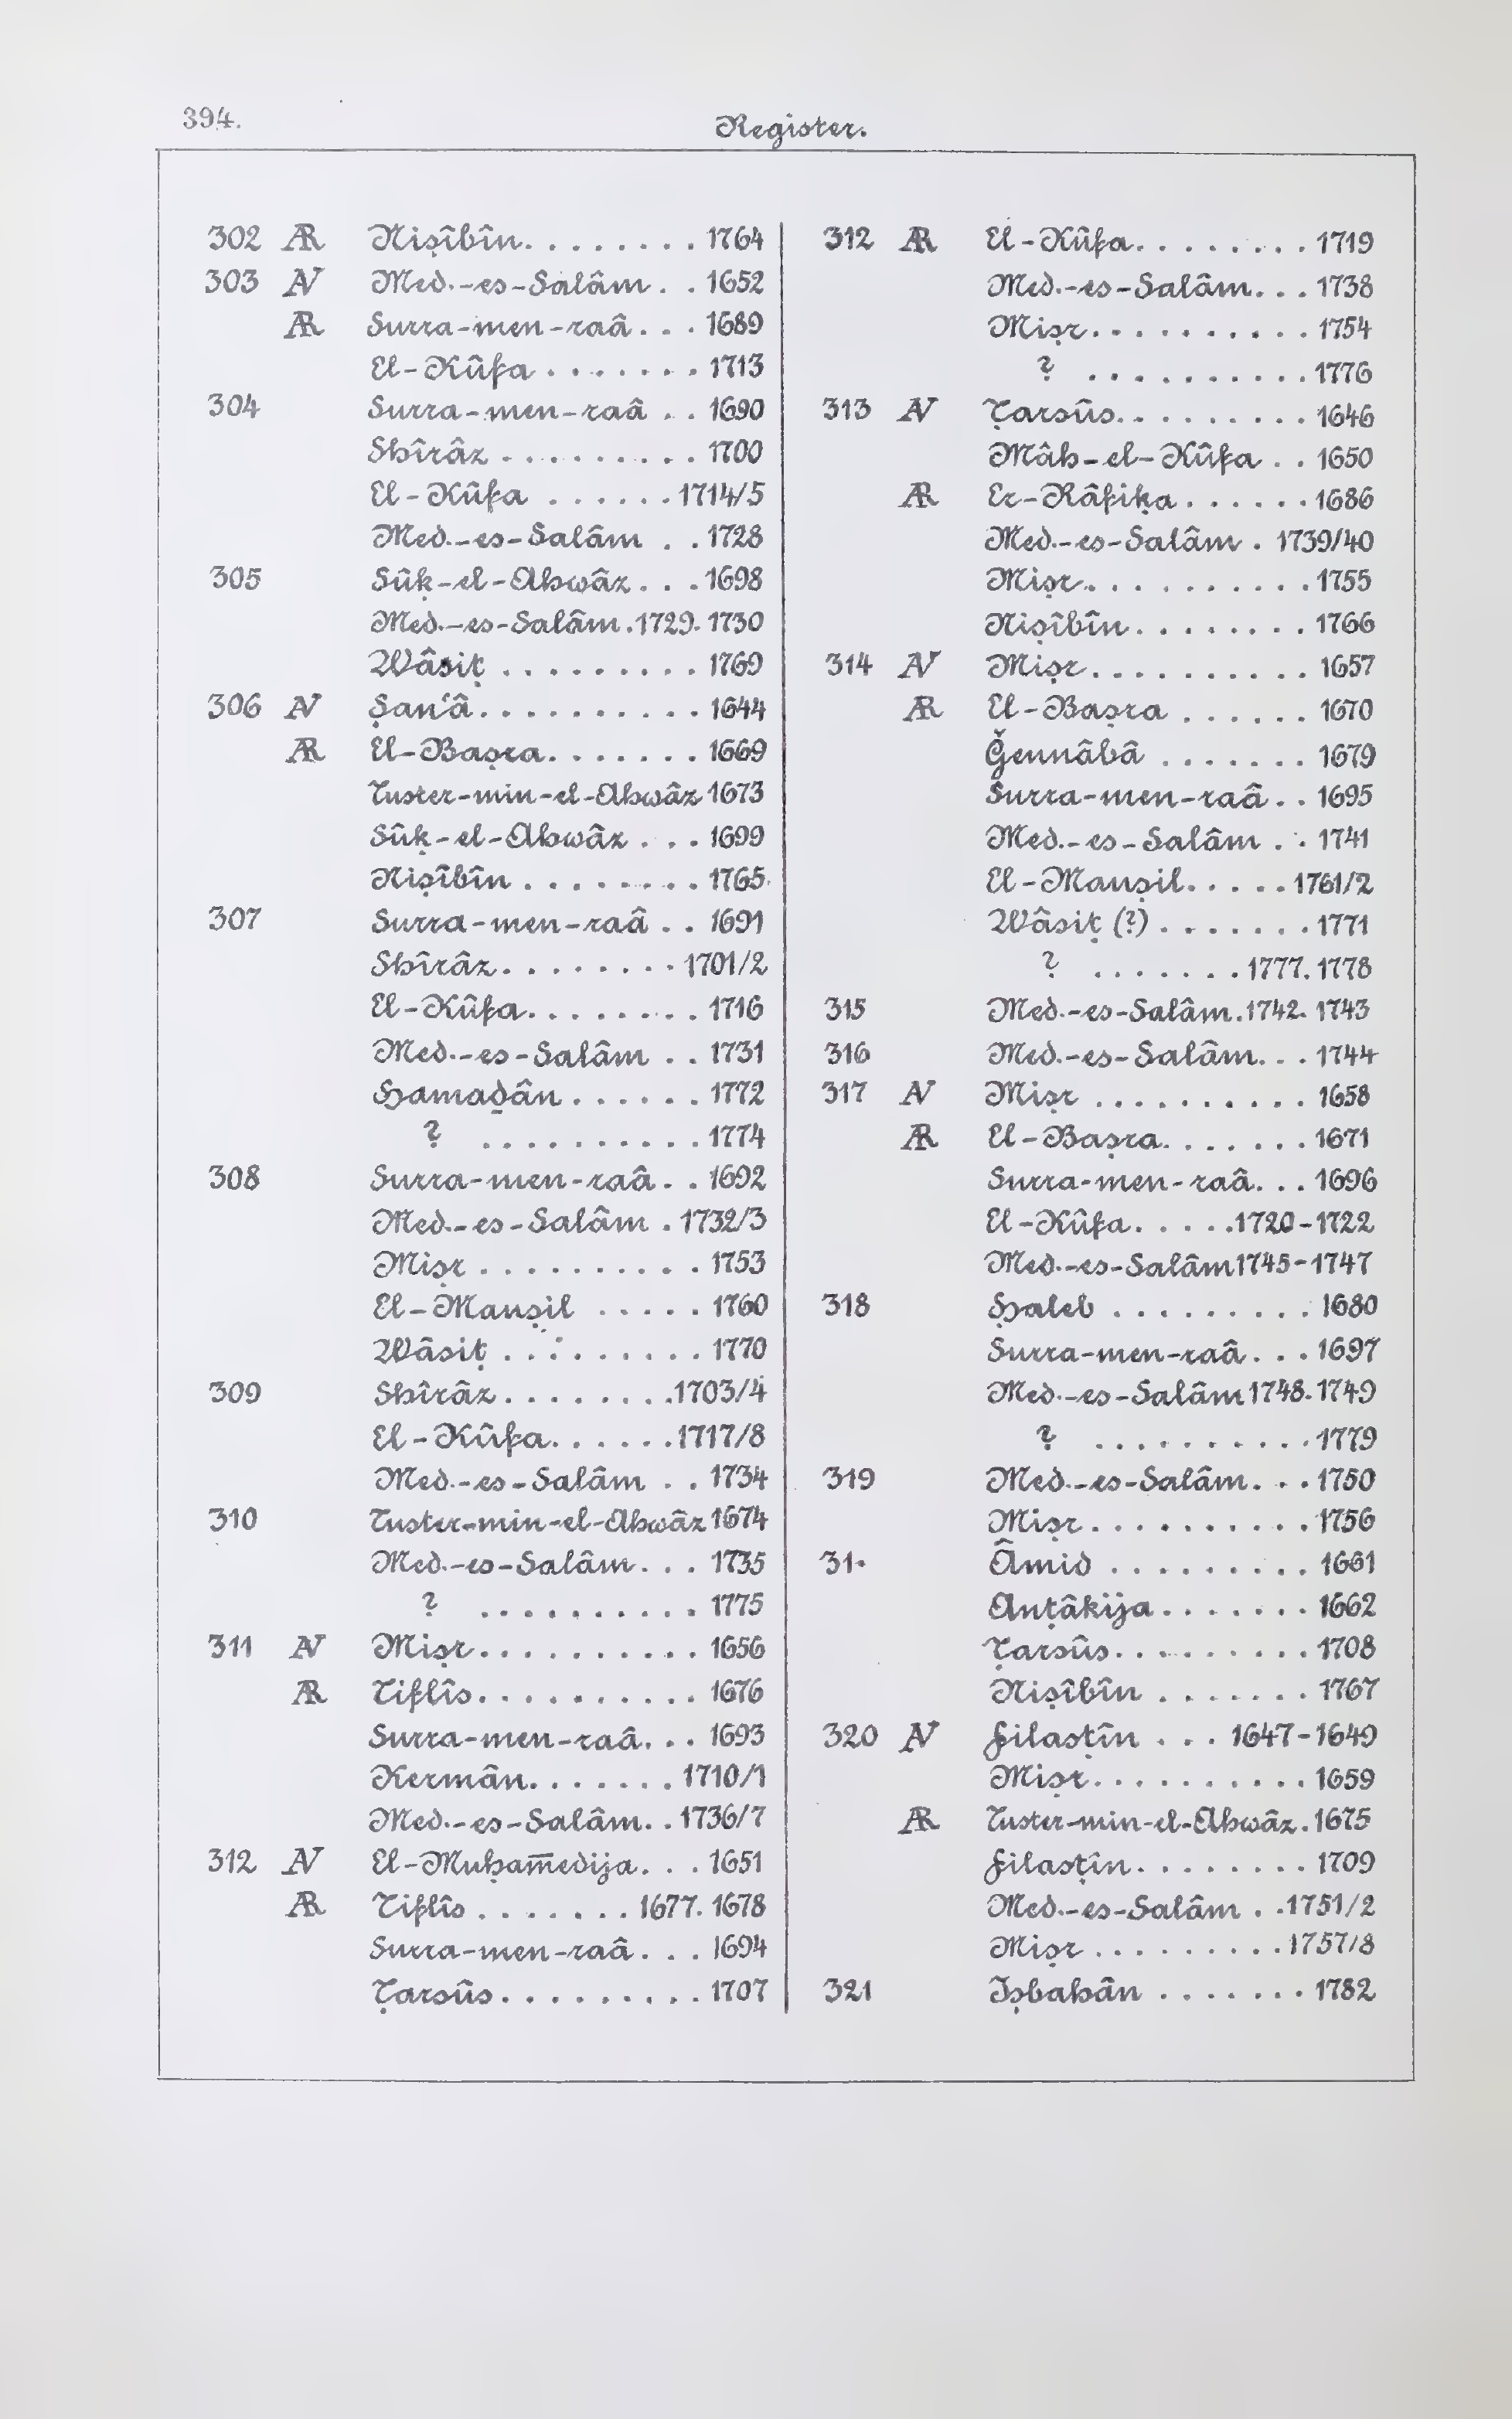 394.
Register.
302 AR Niṣîbîn. . . . . . . . 1764
303 AV Med.-es-Salâm . . 1652
AR Surra-men-raâ . . . 1689
El-Kûfa . . . . . . . 1713
304 Surra-men-raâ . . 1690
Shîrâz . . . . . . . . . 1700
El-Kûfa . . . . . . 1714/5
Med.-es-Salâm . . 1728
305 Sûḳ-el-Ahwâz . . . 1698
Med.-es-Salâm . 1729. 1730
Wâsiṭ . . . . . . . . . 1769
306 AV Ṣan'â. . . . . . . . . . 1644
AR El-Baṣra. . . . . . . 1669
Tuster-min-el-Ahwâz 1673
Sûḳ-el-Ahwâz . . . 1699
Niṣîbîn . . . . . . . . 1765.
307 Surra-men-raâ . . 1691
Shîrâz. . . . . . . . 1701/2
El-Kûfa. . . . . . . . 1716
Med.-es-Salâm . . 1731
Hamaḏân . . . . . . 1772
? . . . . . . . . . . 1774
308 Surra-men-raâ . . 1692
Med.-es-Salâm . 1732/3
Miṣr . . . . . . . . . . 1753
El-Mauṣil . . . . . 1760
Wâsiṭ . . . . . . . . . 1770
309 Shîrâz. . . . . . . . 1703/4
El-Kûfa. . . . . . 1717/8
Med.-es-Salâm . . 1734
310 Tuster-min-el-Ahwâz 1674
Med.-es-Salâm . . . 1735
? . . . . . . . . . . 1775
311 AV Miṣr. . . . . . . . . . 1656
AR Tiflîs. . . . . . . . . . 1676
Surra-men-raâ. . . 1693
Kermân. . . . . . . 1710/1
Med.-es-Salâm. . 1736/7
312 AV El-Muḥam̅edija. . . 1651
AR Tiflîs . . . . . . . 1677. 1678
Surra-men-raâ . . . 1694
Ṭarsûs. . . . . . . . . 1707
312 AR El-Kûfa. . . . . . . . 1719
Med.-es-Salâm. . . 1738
Miṣr. . . . . . . . . . 1754
? . . . . . . . . . . 1776
313 AV Ṭarsûs. . . . . . . . . 1646
Mâh-el-Kûfa . . 1650
AR Er-Râfiḳa . . . . . . 1686
Med.-es-Salâm . 1739/40
Miṣr. . . . . . . . . . 1755
Niṣîbîn. . . . . . . . 1766
314 AV Miṣr. . . . . . . . . . 1657
AR El-Baṣra . . . . . . 1670
Ǧennâbâ . . . . . . . 1679
Surra-men-raâ . . 1695
Med.-es-Salâm . . 1741
El-Mauṣil. . . . . 1761/2
Wâsiṭ (?) . . . . . . . 1771
? . . . . . . . 1777. 1778
315 Med.-es-Salâm. 1742. 1743
316 Med.-es-Salâm. . . 1744
317 AV Miṣr . . . . . . . . . . 1658
AR El-Baṣra. . . . . . . 1671
Surra-men-raâ. . . 1696
El-Kûfa. . . . . 1720-1722
Med.-es-Salâm 1745-1747
318 Ḥaleb . . . . . . . . . 1680
Surra-men-raâ . . . 1697
Med.-es-Salâm 1748. 1749
? . . . . . . . . . . 1779
319 Med.-es-Salâm. . . 1750
Miṣr. . . . . . . . . . 1756
31· Âmid . . . . . . . . . 1661
Anṭâkija. . . . . . . 1662
Ṭarsûs. . . . . . . . . 1708
Niṣîbîn . . . . . . . 1767
320 AV Filasṭîn . . . 1647-1649
Miṣr. . . . . . . . . . 1659
AR Tuster-min-el-Ahwâz. 1675
Filasṭîn. . . . . . . . 1709
Med.-es-Salâm . . 1751/2
Miṣr . . . . . . . . . 1757/8
321 Iṣbahân . . . . . . . 1782